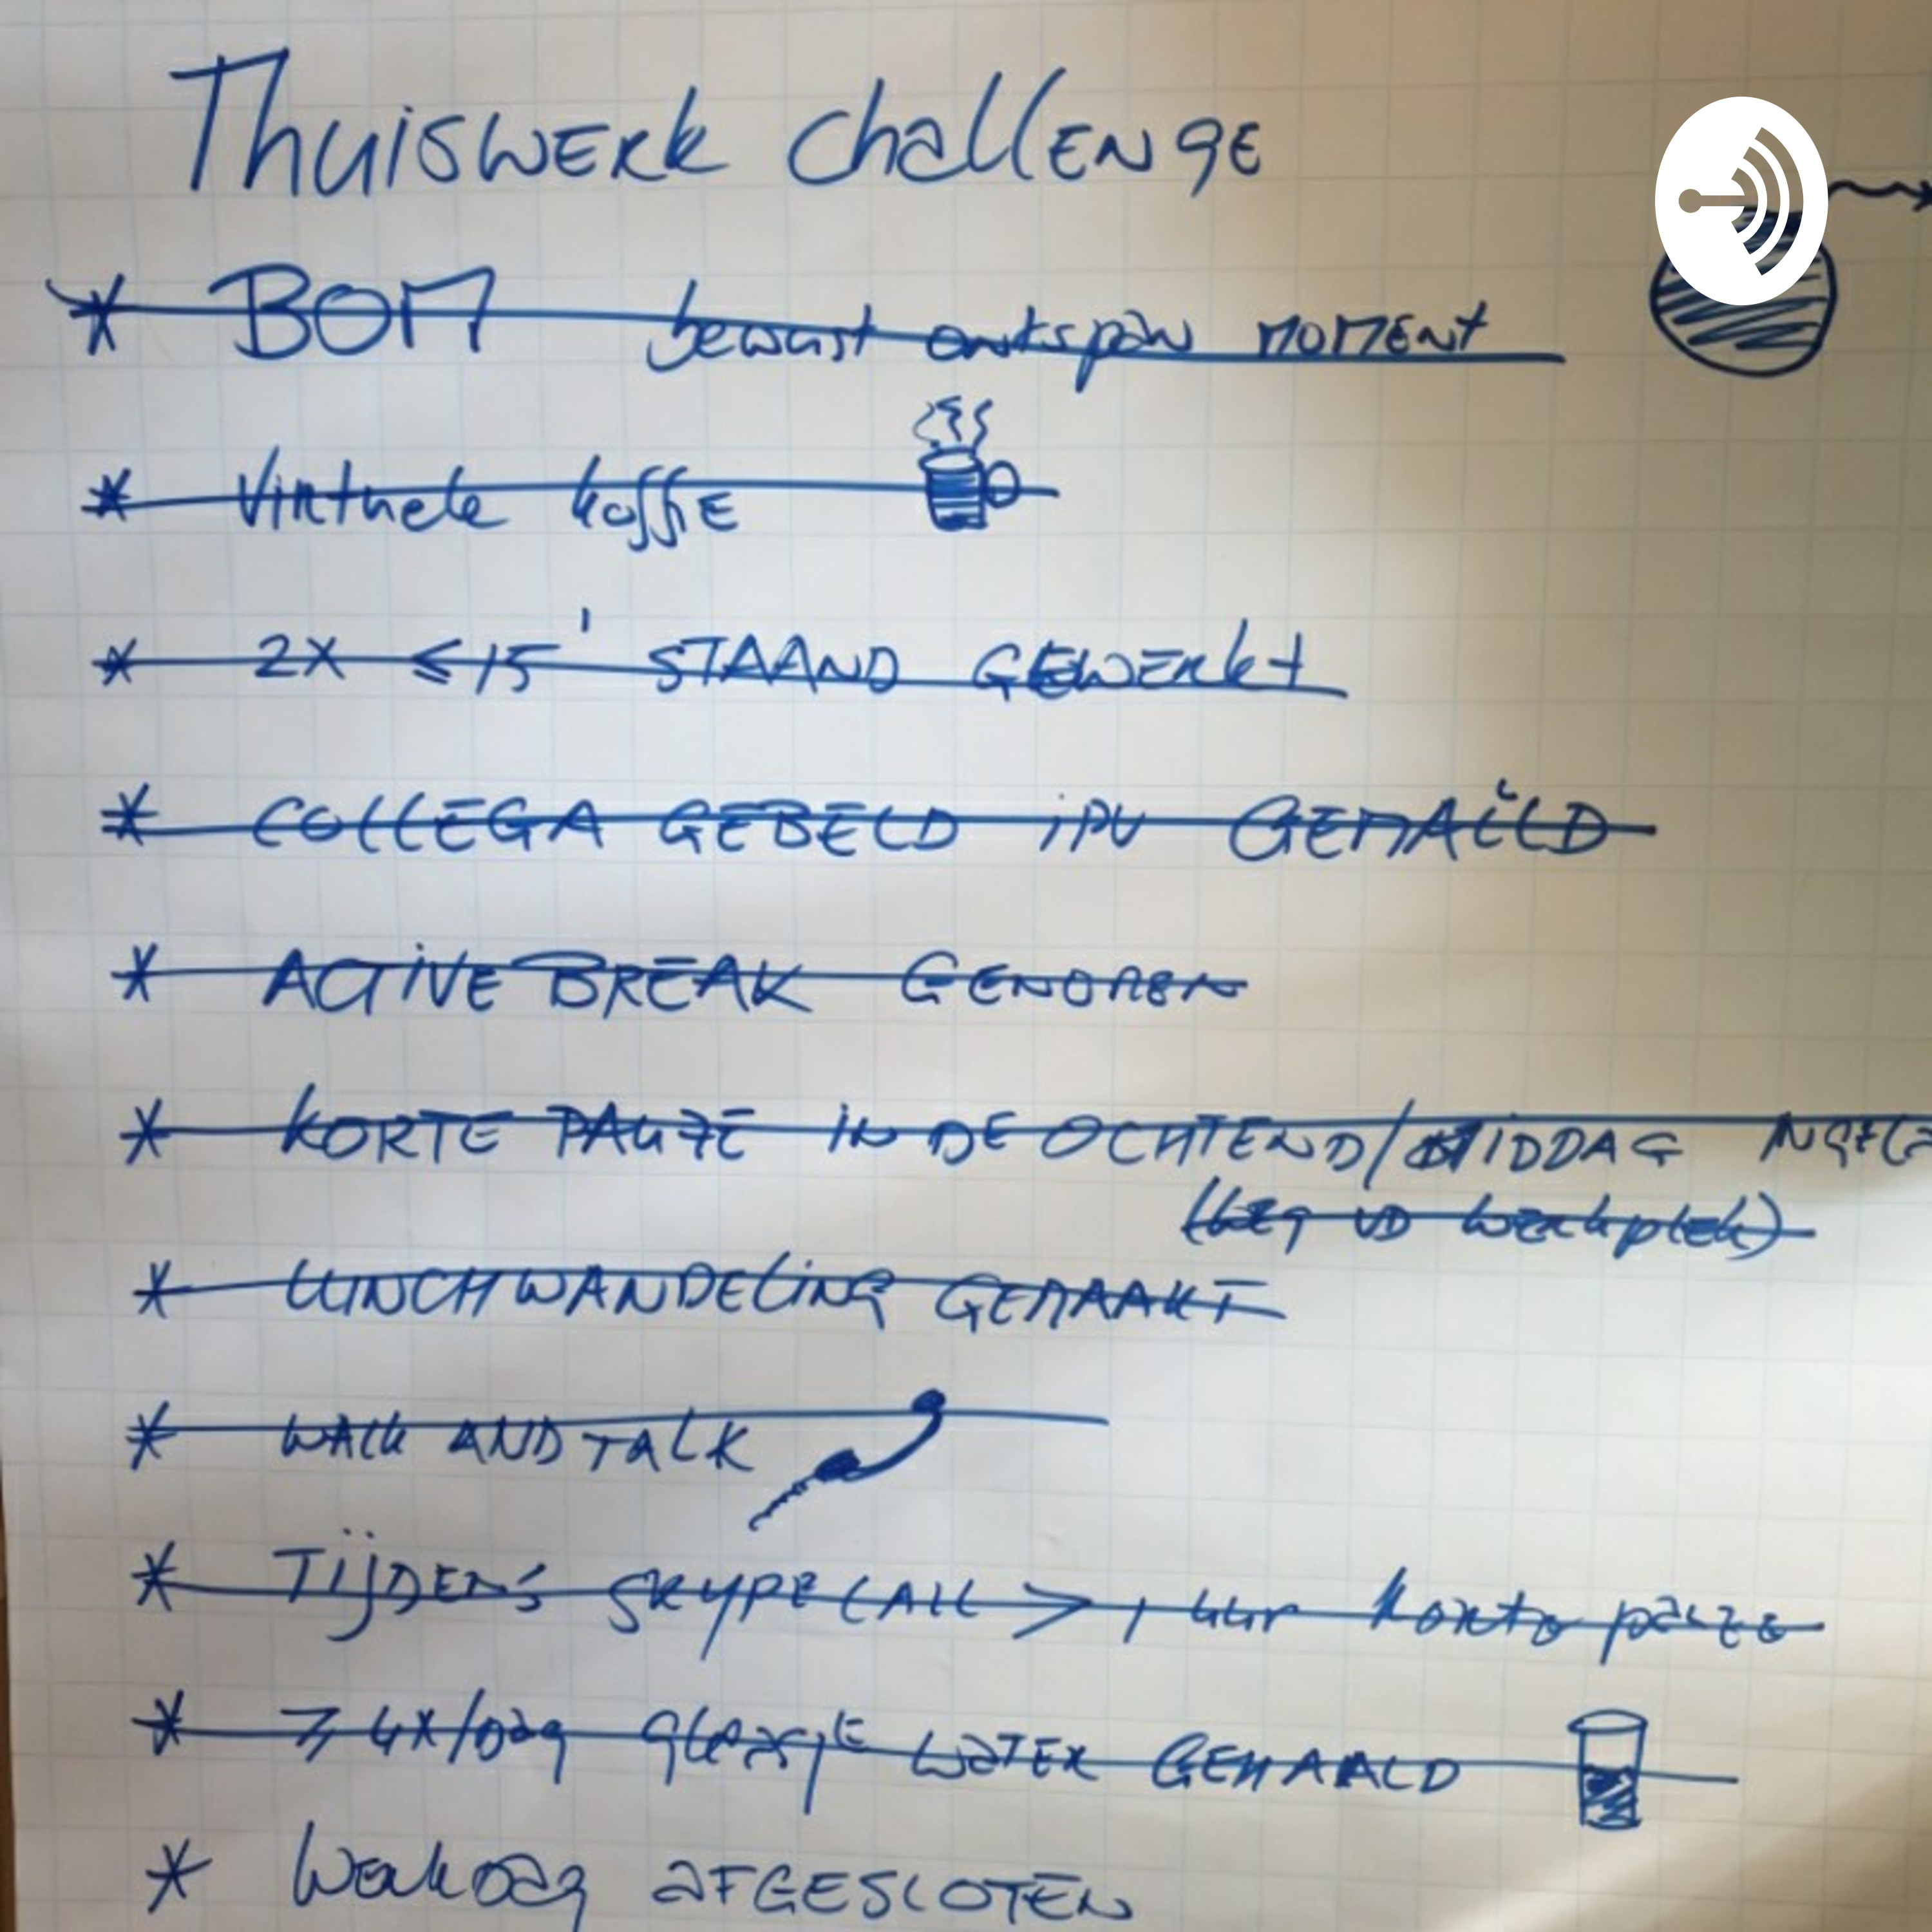 Thuiswerk challenge
* BOM bewust ontspan moment
* Virtuele koffie
* 2x ≤ 15' STAAND GEWERKt
* COLLEGA GEBELD iPV GEMAILD
* ACTIVE BREAK GENOMEN
* KORTE PAUZE IN DE OCHTEND/MIDDAG
(weg vd werkplek)
* LUNCHWANDELING GEMAAKT
* WALK AND TALK
* TIJDENS SKYPE CALL > 1 uur korte pauze
* ≥ 4x/dag glaasje water GEHAALD
* Werkdag AFGESLOTEN